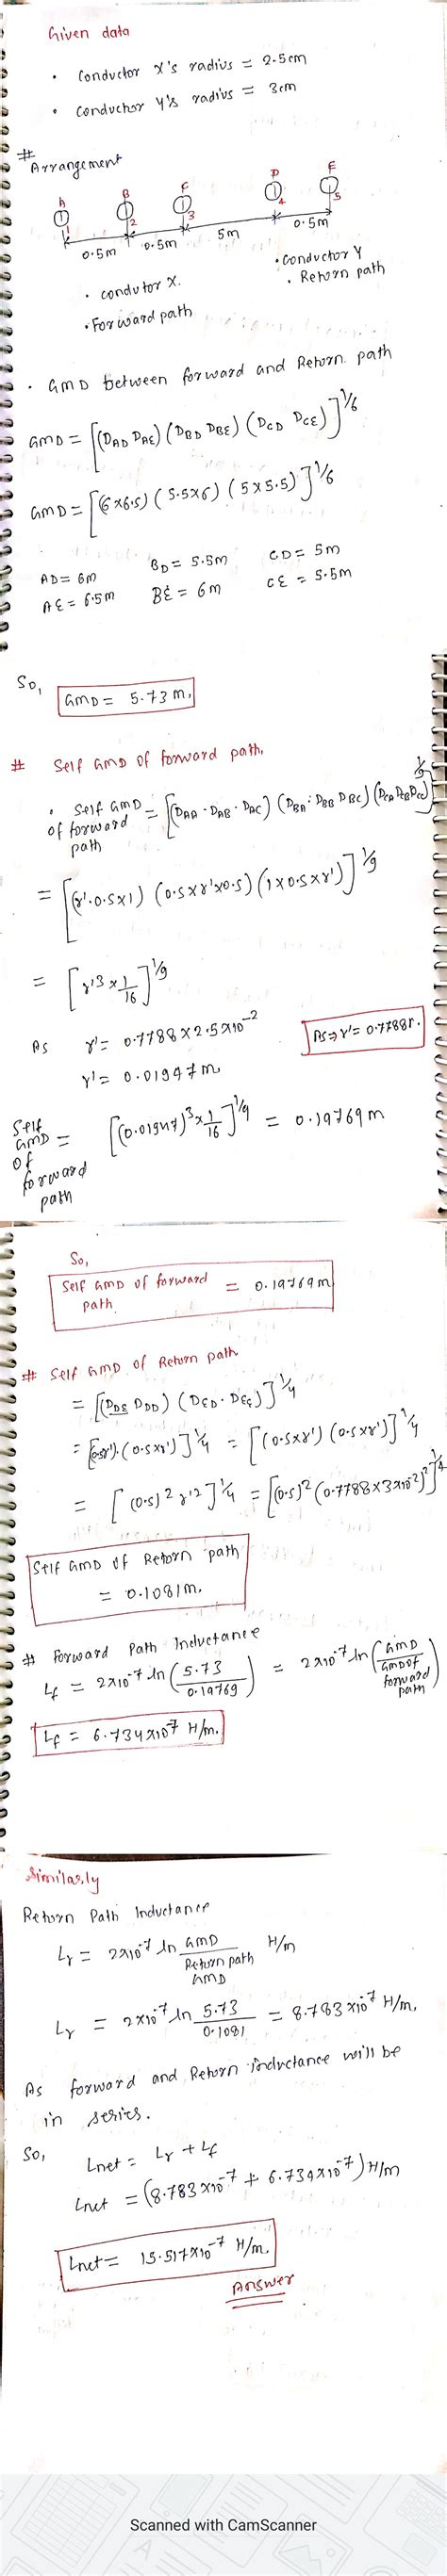 Given data
• Conductor X's radius = 2.5cm
• Conductor Y's radius = 3cm
# Arrangement
A B C D E
1 2 3 4 5
0.5m 0.5m 5m 0.5m
• conductor X.
• Forward path
• Conductor Y
• Return path
• GMD between forward and Return path
GMD = [(DAD DAE) (DBD DBE) (DCD DCE)]^1/6
GMD = [(6×6.5) (5.5×6) (5×5.5)]^1/6
AD = 6m BD = 5.5m CD = 5m
AE = 6.5m BE = 6m CE = 5.5m
So,
GMD = 5.73 m.
# Self GMD of forward path.
• Self GMD of forward path = [(DAA · DAB · DAC) (DBA · DBB DBC) (DCA DCB DCC)]^1/9
= [(r'·0.5×1) (0.5×r'×0.5) (1×0.5×r')]^1/9
= [r'^3 × 1/16]^1/9
As r' = 0.7788 × 2.5×10^-2
r' = 0.01947m
As ⇒ r' = 0.7788r.
Self GMD of forward path = [(0.01947)^3 × 1/16]^1/9 = 0.19769m
So,
Self GMD of forward path. = 0.19769m
# Self GMD of Return path
= [(DDE DDD) (DED · DEE)]^1/4
= [(0.5r')·(0.5×r')]^1/4 = [(0.5×r') (0.5×r')]^1/4
= [(0.5)^2 r'^2]^1/4 = [(0.5)^2 (0.7788×3×10^-2)^2]^1/4
Self GMD of Return path
= 0.1081m.
# Forward Path Inductance
Lf = 2×10^-7 ln (5.73/0.19769) = 2×10^-7 ln (GMD/GMD of forward path)
Lf = 6.734×10^-7 H/m.
Similarly
Return Path Inductance
Lr = 2×10^-7 ln GMD/Return path GMD H/m
Lr = 2×10^-7 ln 5.73/0.1081 = 8.783×10^-7 H/m.
As forward and Return inductance will be
in series.
So, Lnet = Lr + Lf
Lnet = (8.783×10^-7 + 6.734×10^-7) H/m
Lnet = 15.517×10^-7 H/m.
Answer
Scanned with CamScanner